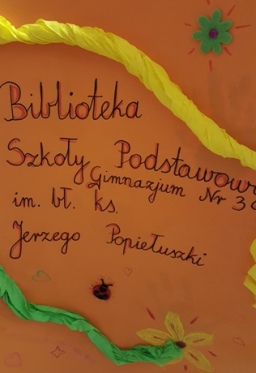 Biblioteka
Szkoły Podstawowej
Gimnazjum Nr 3
im. bł. ks.
Jerzego Popiełuszki